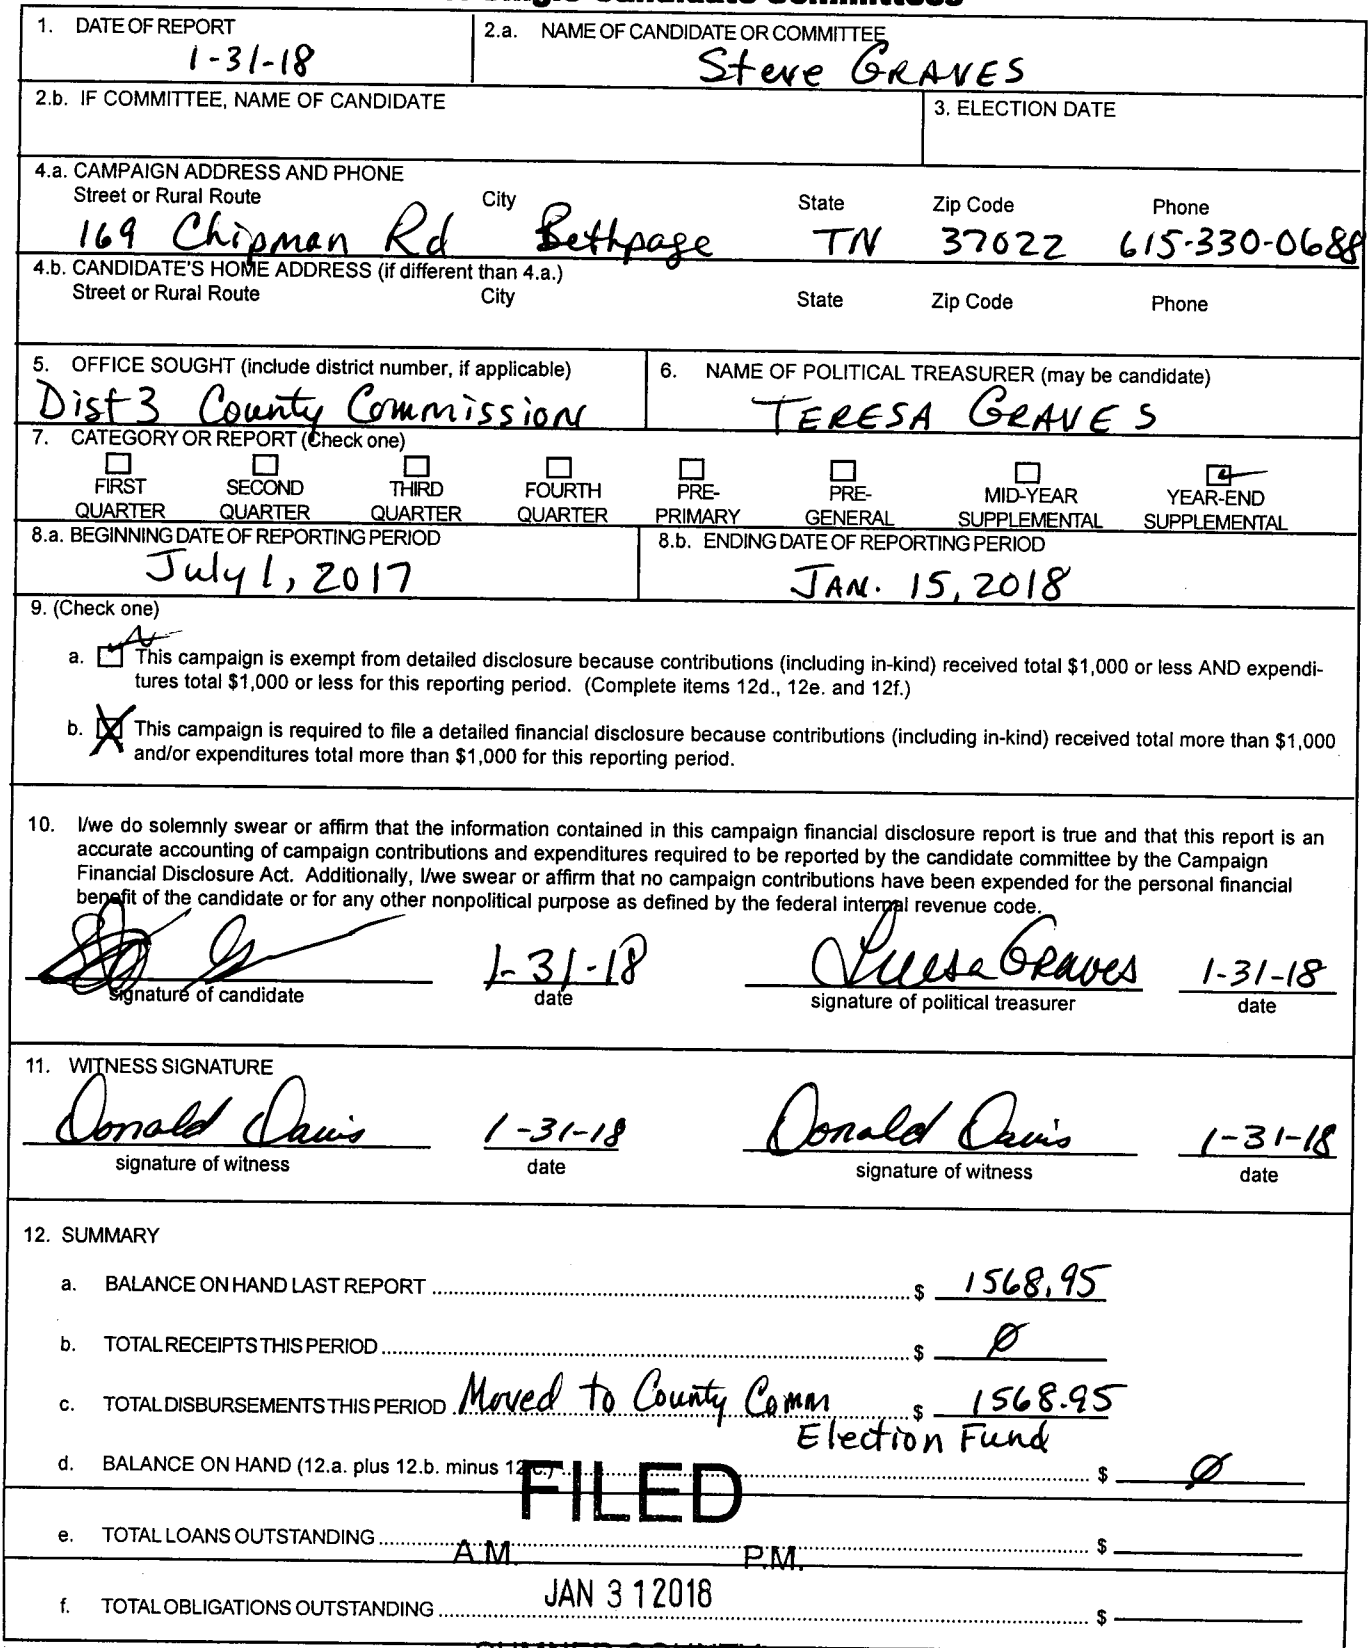 Single Candidate Committees
1. DATE OF REPORT
1-31-18
2.a. NAME OF CANDIDATE OR COMMITTEE
Steve GRAVES
2.b. IF COMMITTEE, NAME OF CANDIDATE
3. ELECTION DATE
4.a. CAMPAIGN ADDRESS AND PHONE
Street or Rural Route City State Zip Code Phone
169 Chipman Rd Bethpage TN 37022 615-330-0688
4.b. CANDIDATE'S HOME ADDRESS (if different than 4.a.)
Street or Rural Route City State Zip Code Phone
5. OFFICE SOUGHT (include district number, if applicable)
Dist 3 County Commission
6. NAME OF POLITICAL TREASURER (may be candidate)
TERESA GRAVES
7. CATEGORY OR REPORT (Check one)
FIRST QUARTER
SECOND QUARTER
THIRD QUARTER
FOURTH QUARTER
PRE-PRIMARY
PRE-GENERAL
MID-YEAR SUPPLEMENTAL
YEAR-END SUPPLEMENTAL
8.a. BEGINNING DATE OF REPORTING PERIOD
July 1, 2017
8.b. ENDING DATE OF REPORTING PERIOD
JAN. 15, 2018
9. (Check one)
a. This campaign is exempt from detailed disclosure because contributions (including in-kind) received total $1,000 or less AND expendi-
tures total $1,000 or less for this reporting period. (Complete items 12d., 12e. and 12f.)
b. This campaign is required to file a detailed financial disclosure because contributions (including in-kind) received total more than $1,000
and/or expenditures total more than $1,000 for this reporting period.
10. I/we do solemnly swear or affirm that the information contained in this campaign financial disclosure report is true and that this report is an
accurate accounting of campaign contributions and expenditures required to be reported by the candidate committee by the Campaign
Financial Disclosure Act. Additionally, I/we swear or affirm that no campaign contributions have been expended for the personal financial
benefit of the candidate or for any other nonpolitical purpose as defined by the federal internal revenue code.
1-31-18 Teresa Graves 1-31-18
signature of candidate date signature of political treasurer date
11. WITNESS SIGNATURE
Donald Davis 1-31-18 Donald Davis 1-31-18
signature of witness date signature of witness date
12. SUMMARY
a. BALANCE ON HAND LAST REPORT $ 1568.95
b. TOTAL RECEIPTS THIS PERIOD $ Ø
c. TOTAL DISBURSEMENTS THIS PERIOD Moved to County Comm $ 1568.95
Election Fund
d. BALANCE ON HAND (12.a. plus 12.b. minus 12.c.) $ Ø
FILED
e. TOTAL LOANS OUTSTANDING $
A.M. P.M.
JAN 31 2018
f. TOTAL OBLIGATIONS OUTSTANDING $
SUMNER COUNTY